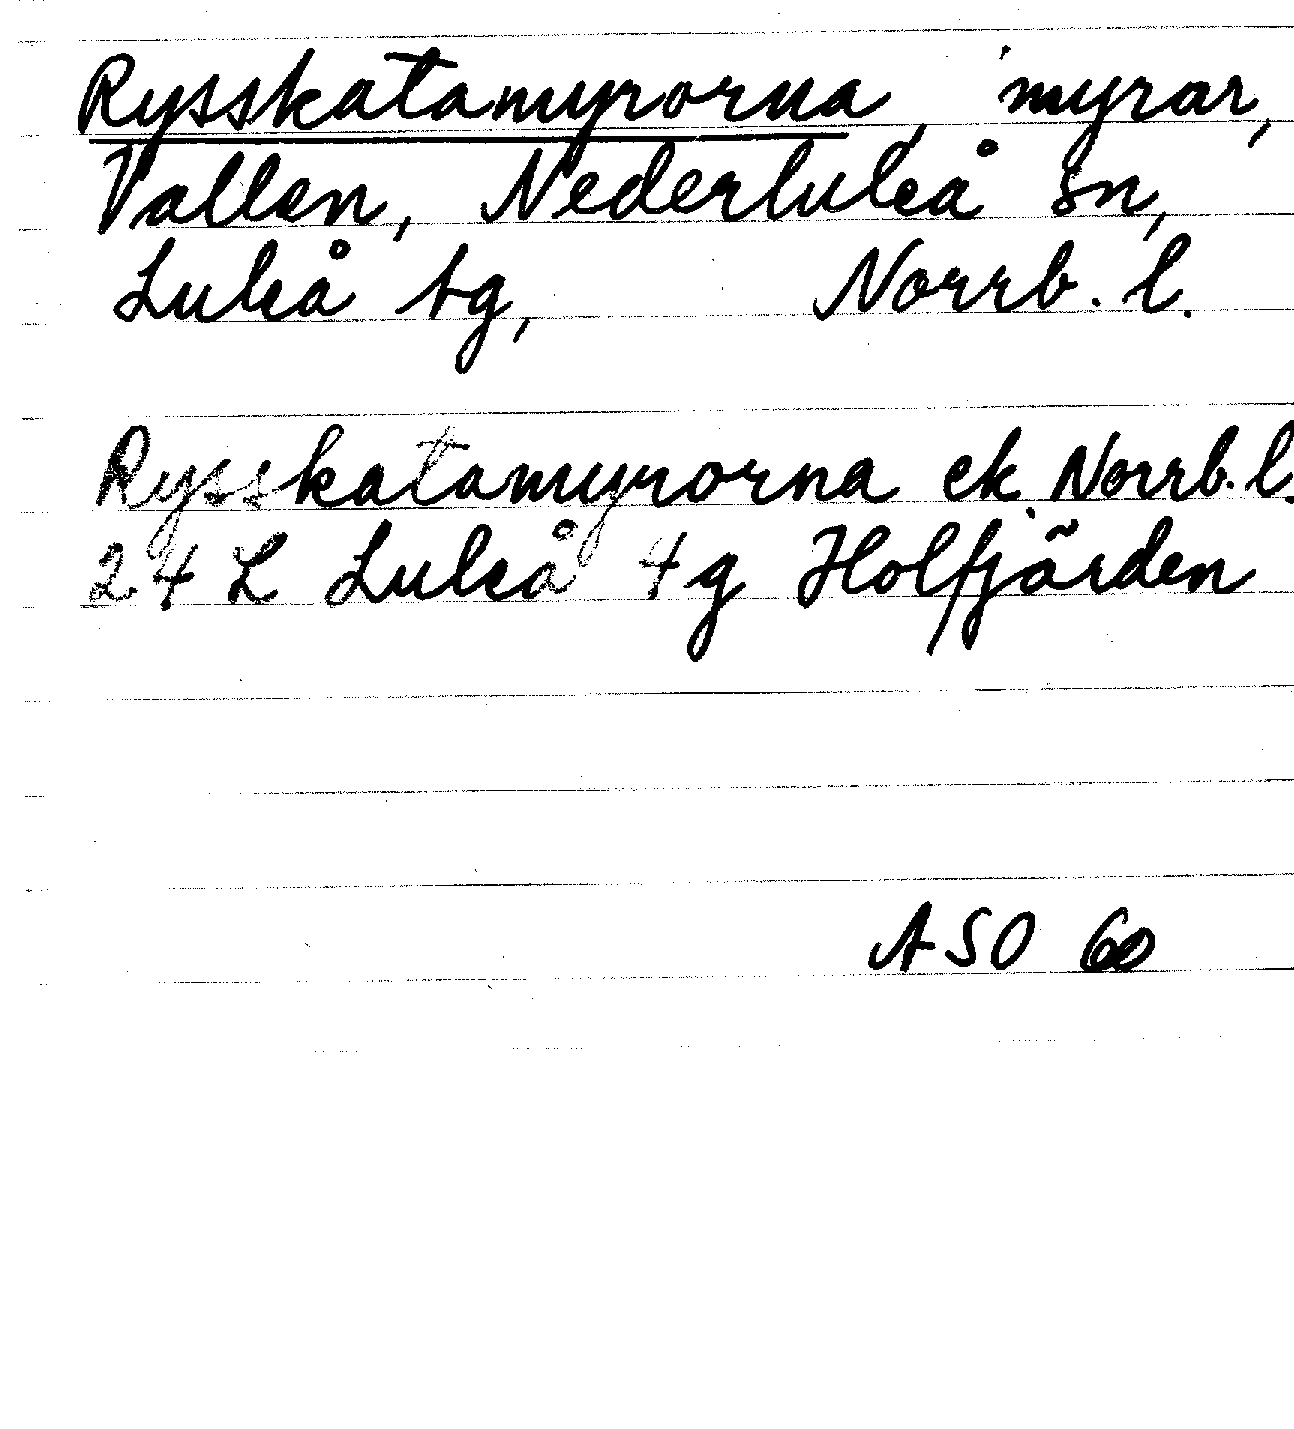 Rysskatamyrorna, myrar,
Vallen, Nederluleå sn,
Luleå tg, Norrb. l.
Rysskatamyrorna ek. Norrb. l.
24 L Luleå 4g Holfjärden
ASO 60